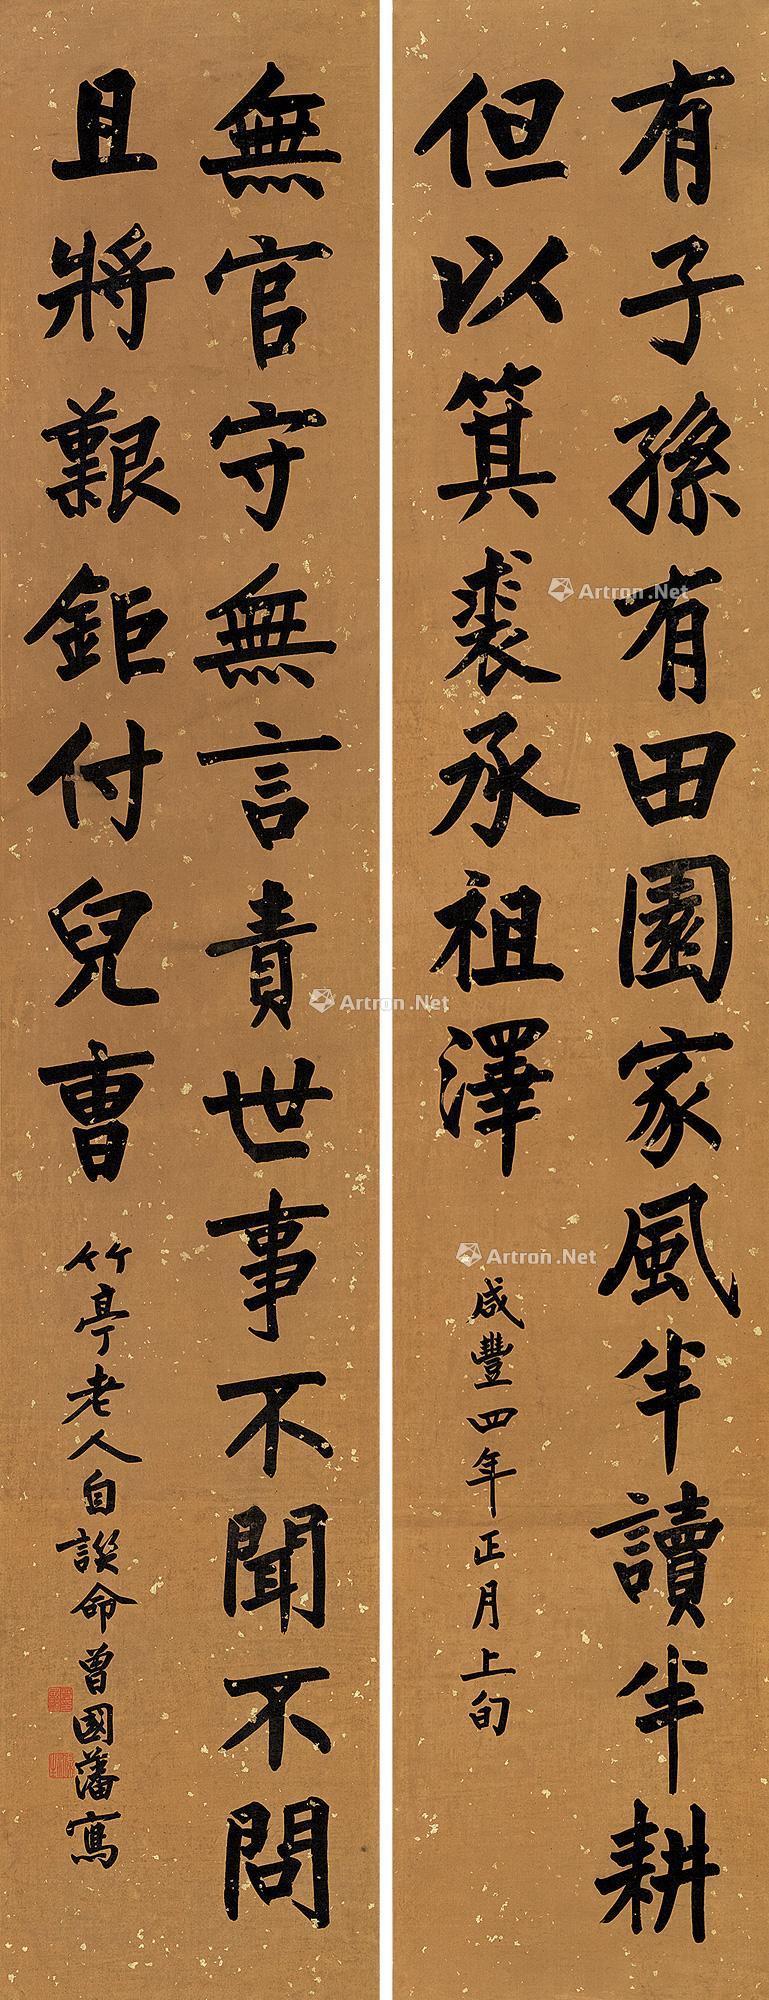 有子孫有田園家風半讀半耕
但以箕裘承祖澤
咸豐四年正月上旬
無官守無言責世事不聞不問
且將艱鉅付兒曹
竹亭老人自譔命曾國藩寫
Artron.Net
Artron.Net
Artron.Net